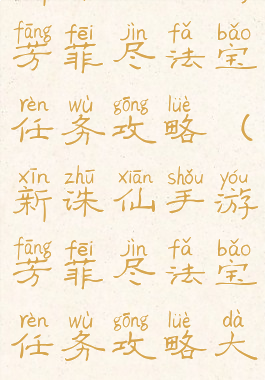 fāng fēi jìn fǎ bǎo
芳菲尽法宝
rèn wù gōng lüè
任务攻略（
xīn zhū xiān shǒu yóu
新诛仙手游
fāng fēi jìn fǎ bǎo
芳菲尽法宝
rèn wù gōng lüè dà
任务攻略大